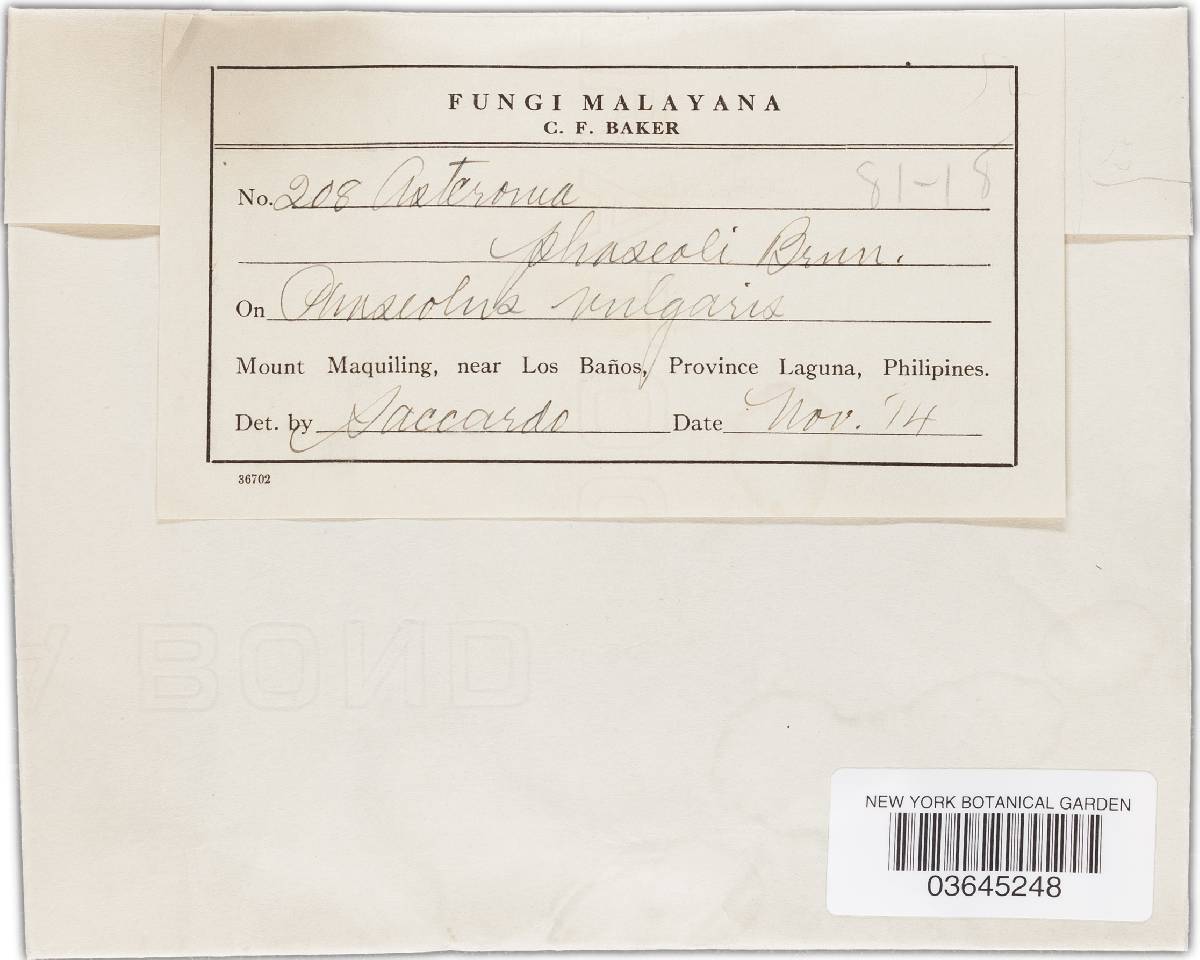 FUNGI MALAYANA
C. F. BAKER
No. 208 Asteroma 81-18
phaseoli Brun.
On Phaseolus vulgaris
Mount Maquiling, near Los Baños, Province Laguna, Philipines.
Det. by Saccardo Date Nov. '14
36702
A BOND
NEW YORK BOTANICAL GARDEN
03645248